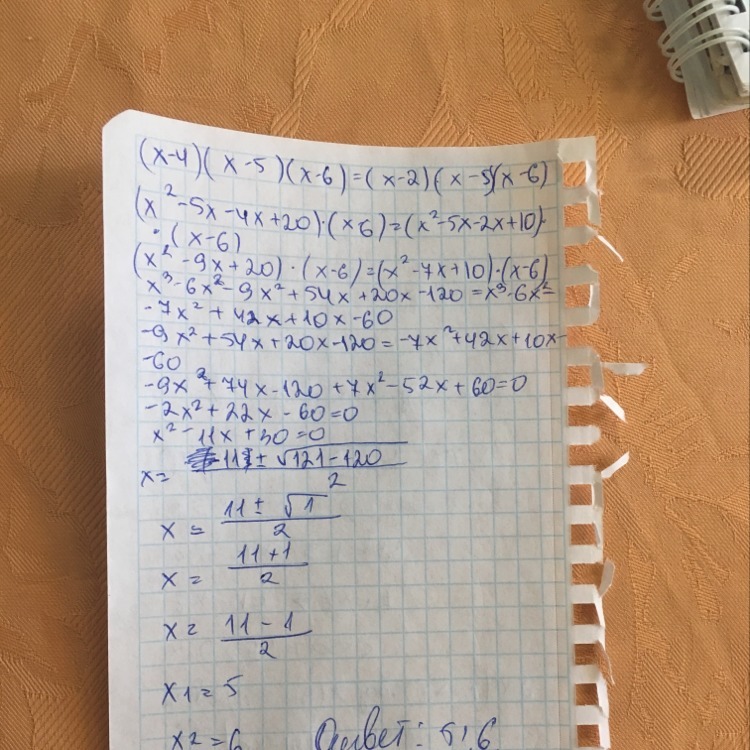 (x-4)(x-5)(x-6)=(x-2)(x-5)(x-6)
(x²-5x-4x+20)·(x6)=(x²-5x-2x+10)·
·(x-6)
(x²-9x+20)·(x-6)=(x²-7x+10)·(x-6)
x³-6x²-9x²+54x+20x-120=x³-6x²-
-7x²+42x+10x-60
-9x²+54x+20x-120=-7x²+42x+10x-
-60
-9x²+74x-120+7x²-52x+60=0
-2x²+22x-60=0
x²-11x+30=0
x= 11±√121-120 / 2
x= 11±√1 / 2
x= 11+1 / 2
x= 11-1 / 2
x1=5
x2=6 Ответ: 5;6